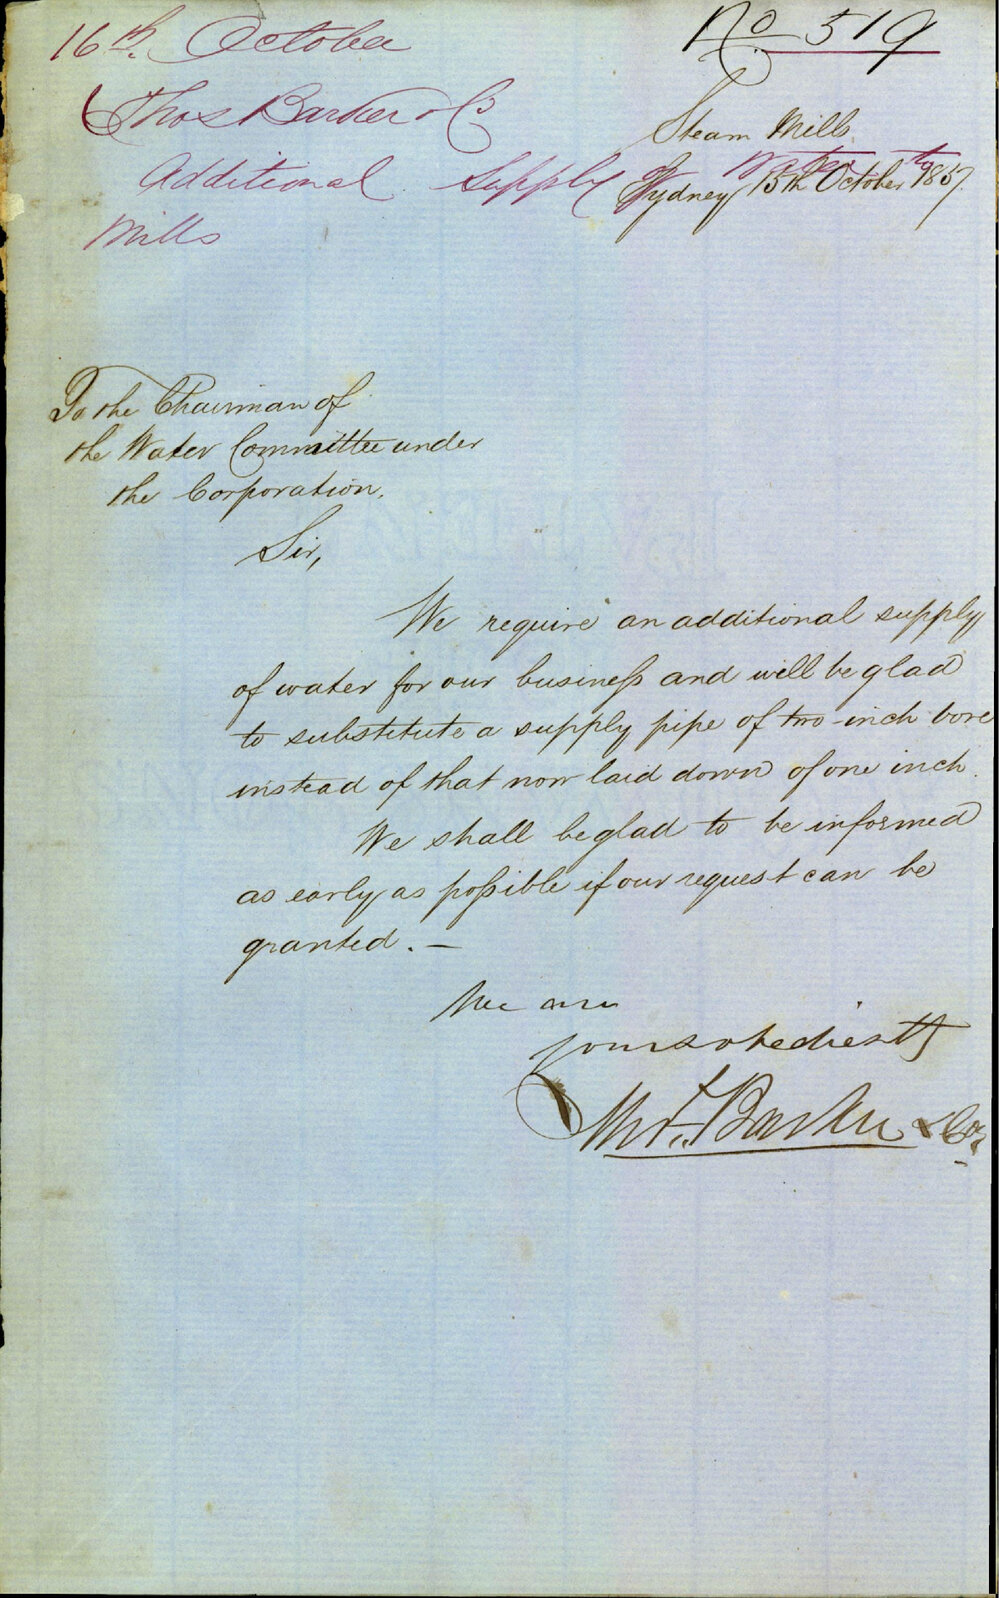 16th. October
No 519
Thos Barker & Co
Steam Mills
Additional Supply of Water to
Sydney 15th October 1857.
Mills
To the Chairman of
the Water Committee under
the Corporation.
Sir,
We require an additional supply
of water for our business and will be glad
to substitute a supply pipe of two-inch bore
instead of that now laid down of one inch.
We shall be glad to be informed
as early as possible if our request can be
granted. —
We are
Yours obediently
Thos. Barker & Co.